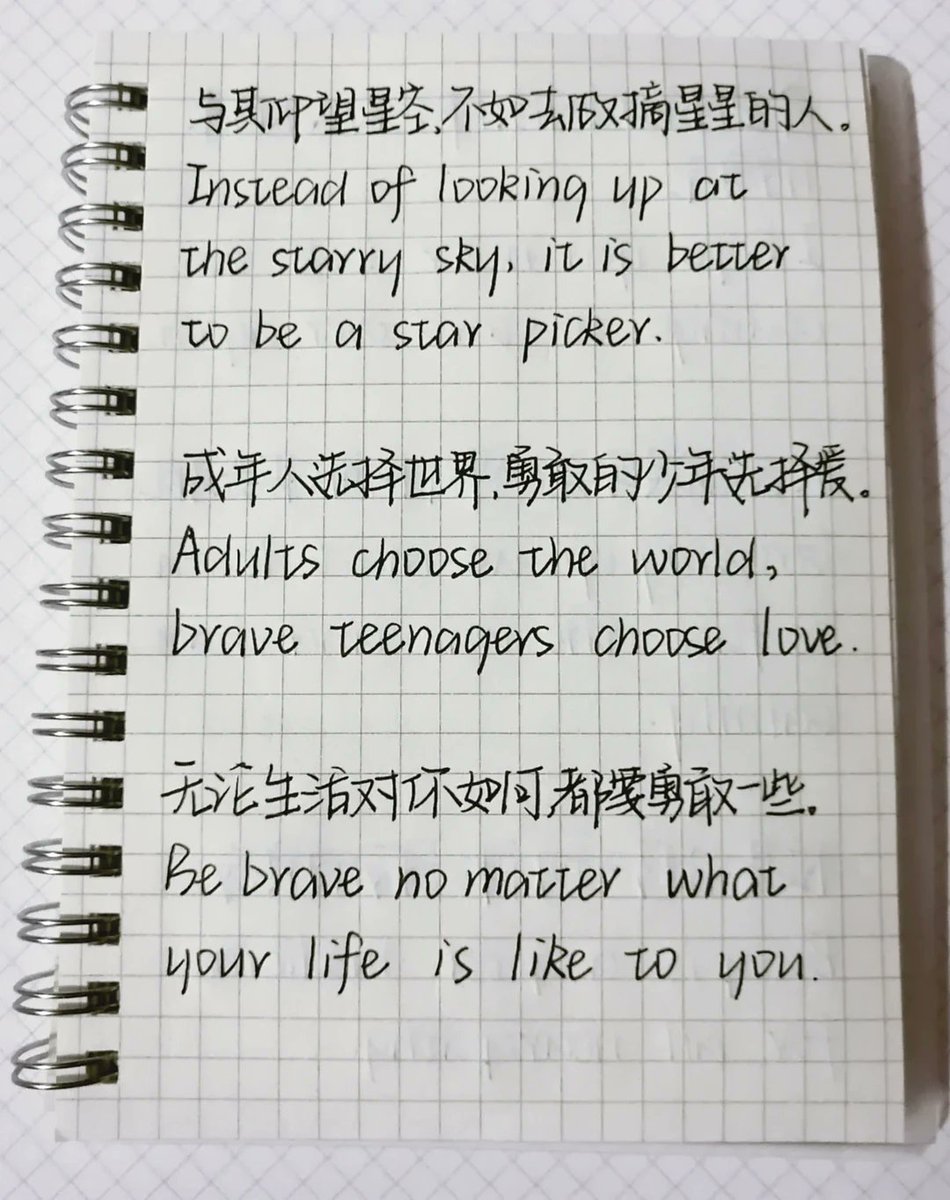 与其仰望星空,不如去做摘星星的人。
Instead of looking up at
the starry sky, it is better
to be a star picker.
成年人选择世界,勇敢的少年选择爱。
Adults choose the world,
brave teenagers choose love.
无论生活对你如何,都要勇敢一些.
Be brave no matter what
your life is like to you.